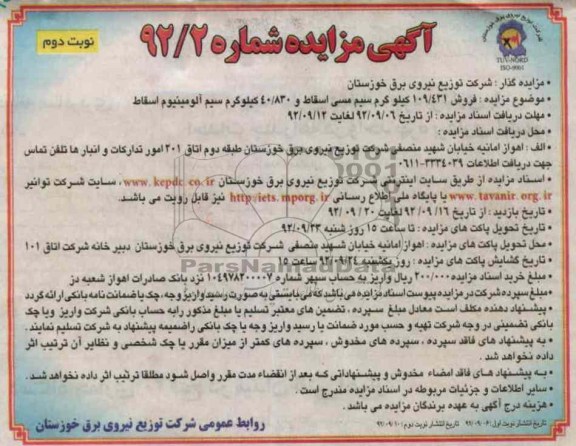 آگهی مزایده شماره ۹۲/۲
نوبت دوم
TUV NORD
ISO-9001
• مزایده گذار : شرکت توزیع نیروی برق خوزستان
• موضوع مزایده : فروش ۱۰۹/۴۳۱ کیلو گرم سیم مسی اسقاط و ۴۰/۸۳۰ کیلوگرم سیم آلومینیوم اسقاط
• مهلت دریافت اسناد مزایده : از تاریخ ۹۲/۰۹/۰۶ لغایت ۹۲/۰۹/۱۲
• محل دریافت اسناد مزایده :
الف : اهواز امانیه خیابان شهید منصفی شرکت توزیع نیروی برق خوزستان طبقه دوم اتاق ۲۰۱ امور تدارکات و انبار ها تلفن تماس
جهت دریافت اطلاعات ۳۳۳۴۰۳۹-۰۶۱۱
• اسناد مزایده از طریق سایت اینترنتی شرکت توزیع نیروی برق خوزستان www.kepdc.co.ir ، سایت شرکت توانیر
www.tavanir.org.ir یا پایگاه ملی اطلاع رسانی http://iets.mporg.ir نیز قابل رویت می باشد.
• تاریخ بازدید : از تاریخ ۹۲/۰۹/۱۶ لغایت ۲۰ / ۰۹ / ۹۲
• تاریخ تحویل پاکت های مزایده : تا ساعت ۱۵ روز شنبه ۹۲/۰۹/۲۳
• محل تحویل پاکت های مزایده : اهواز امانیه خیابان شهید منصفی شرکت توزیع نیروی برق خوزستان دبیر خانه شرکت اتاق ۱۰۱
• تاریخ گشایش پاکت های مزایده : روز یکشنبه ۹۲/۰۹/۲۴ ساعت ۱۵
• مبلغ خرید اسناد مزایده ۲۰۰/۰۰۰ ریال واریز به حساب سپهر شماره ۰۱۰۴۹۷۸۳۰۰۰۰۷ نزد بانک صادرات اهواز شعبه دز
• مبلغ سپرده شرکت در مزایده پیوست اسناد مزایده می باشد که می بایستی به صورت رسید واریز وجه، چک یا ضمانت نامه بانکی ارائه گردد
پیشنهاد دهنده مکلف است معادل مبلغ سپرده ، تضمین های معتبر تسلیم یا مبلغ مذکور رابه حساب بانکی شرکت واریز ویا چک
بانکی تضمینی در وجه شرکت تهیه و حسب مورد ضمانت یا رسید واریز وجه یا چک بانکی راضمیمه پیشنهاد به شرکت تسلیم نمایند .
• به پیشنهاد های فاقد سپرده ، سپرده های مخدوش ، سپرده های کمتر از میزان مقرر یا چک شخصی و نظایر آن ترتیب اثر
داده نخواهد شد .
• به پیشنهاد های فاقد امضاء مخدوش و پیشنهاداتی که بعد از انقضاء مدت مقرر واصل شود مطلقا ترتیب اثر داده نخواهد شد .
• سایر اطلاعات و جزئیات مربوطه در اسناد مزایده مندرج است .
• هزینه درج آگهی به عهده برندگان مزایده می باشد .
تاریخ انتشار نوبت اول : ۹۲/۰۹/۰۶ تاریخ انتشار نوبت دوم : ۹۲/۰۹/۱۰
روابط عمومی شرکت توزیع نیروی برق خوزستان
ParsNamadData